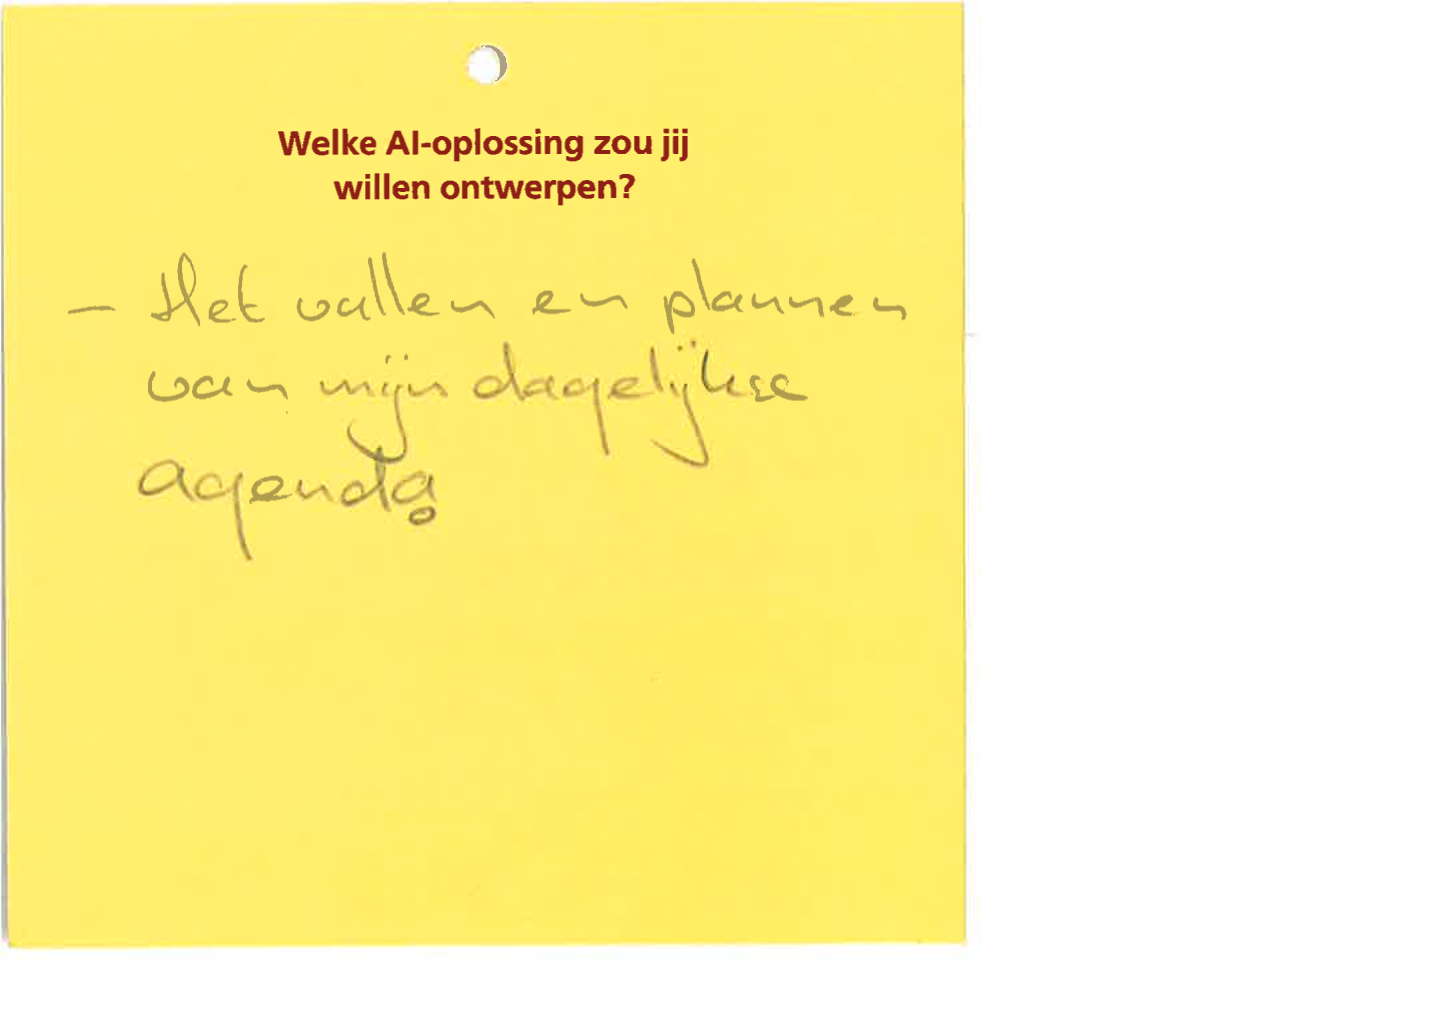 Welke AI-oplossing zou jij
willen ontwerpen?
- Het vullen en plannen
van mijn dagelijkse
agenda